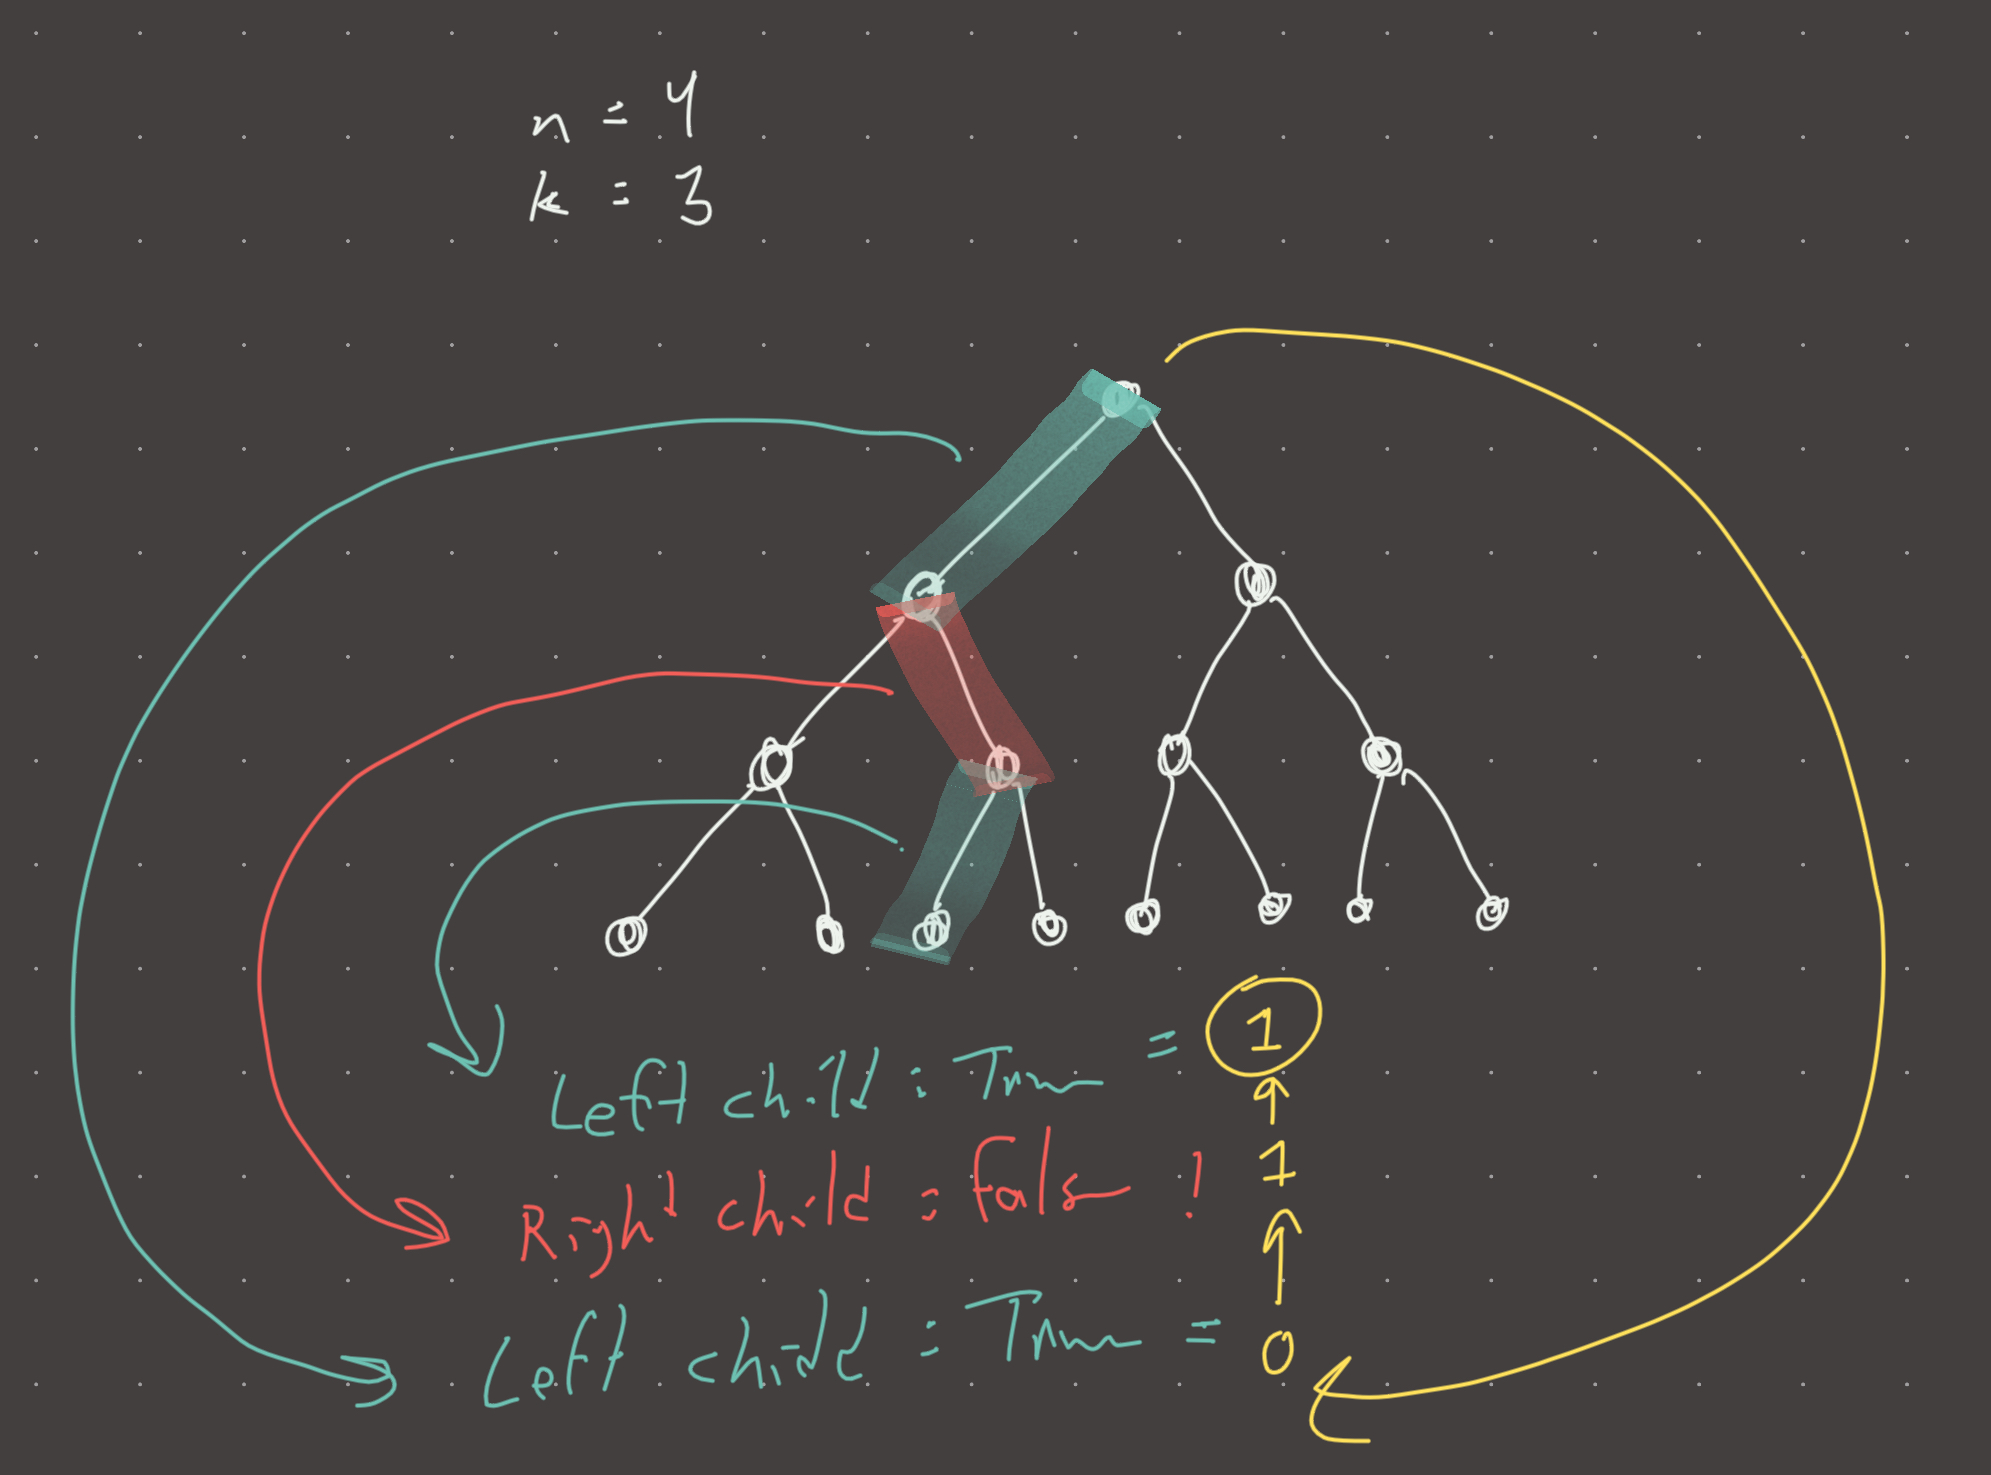 n = 4
k = 3
Left child : True = 1
Right child : false ! 1
Left child : True = 0